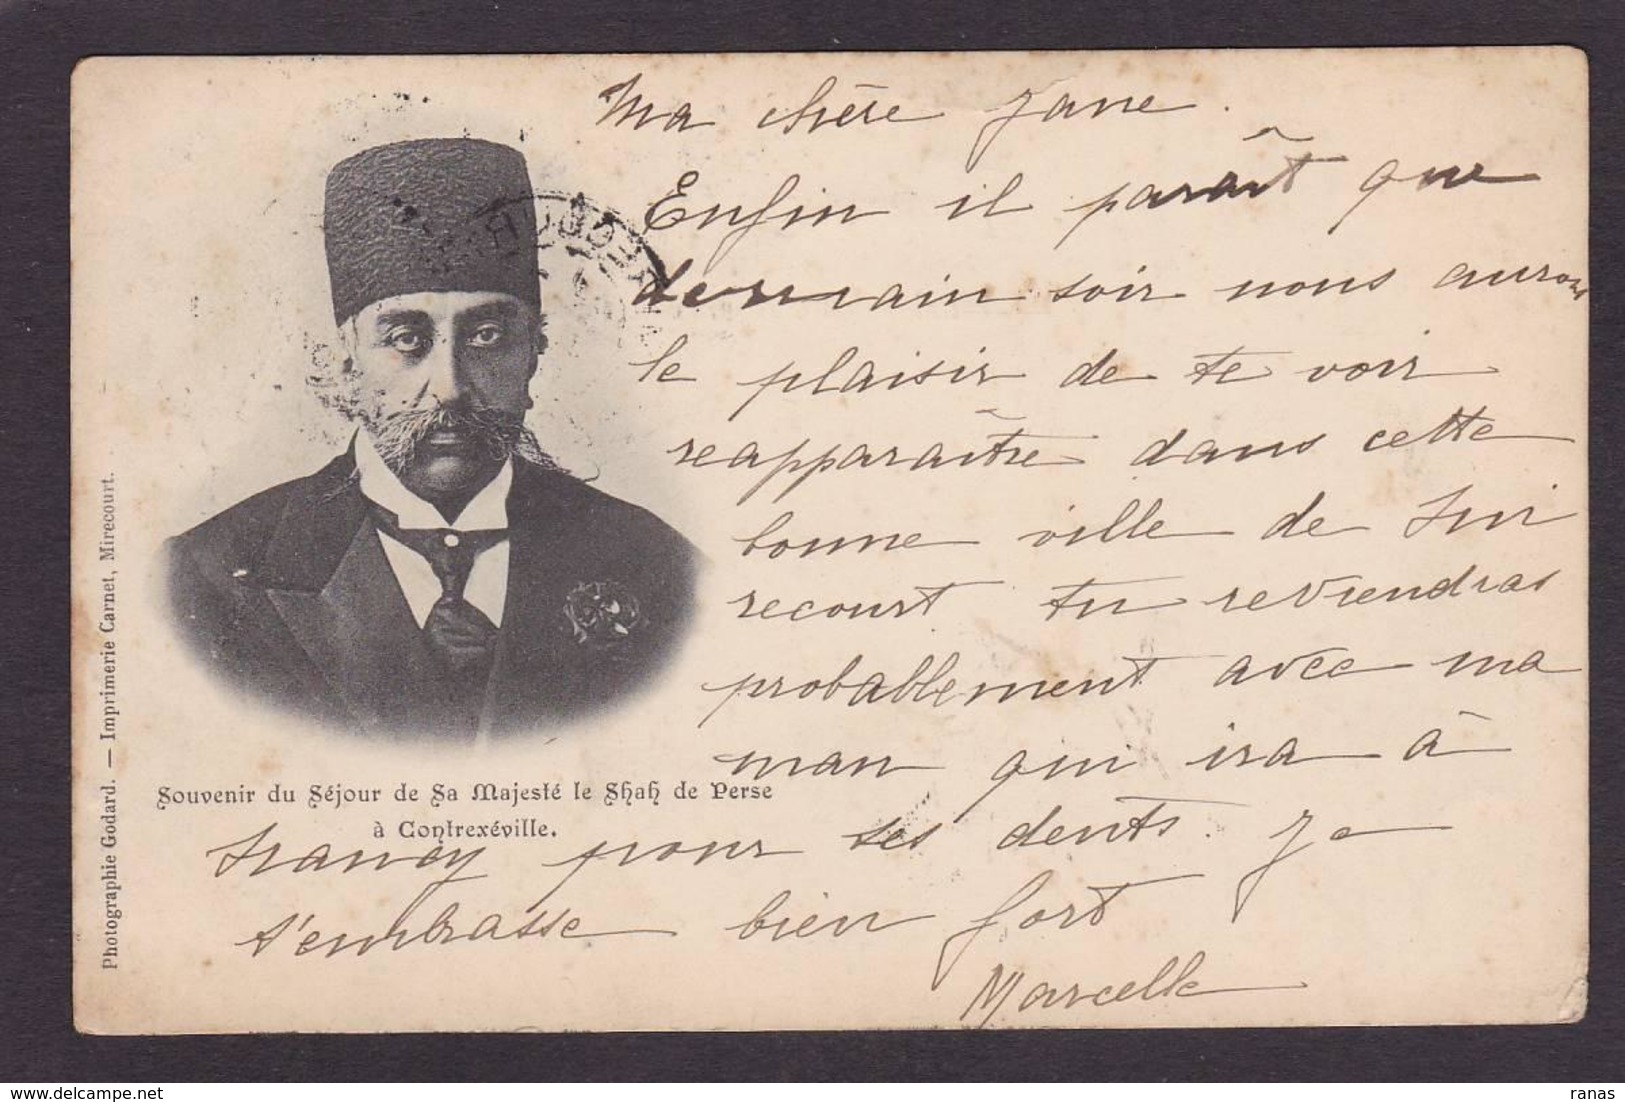 Ma chère Jane.
Enfin il paraît que
demain soir nous aurons
le plaisir de te voir
reapparaître dans cette
bonne ville de
recourt tu reviendras
probablement avec ma
man qui ira à
Nancy pour ses dents. Je
t'embrasse bien fort
Marcelle
Souvenir du Séjour de Sa Majesté le Shah de Perse
à Contrexéville.
Photographie Godard. — Imprimerie Carnet, Mirecourt.
delcampe.net
ranas